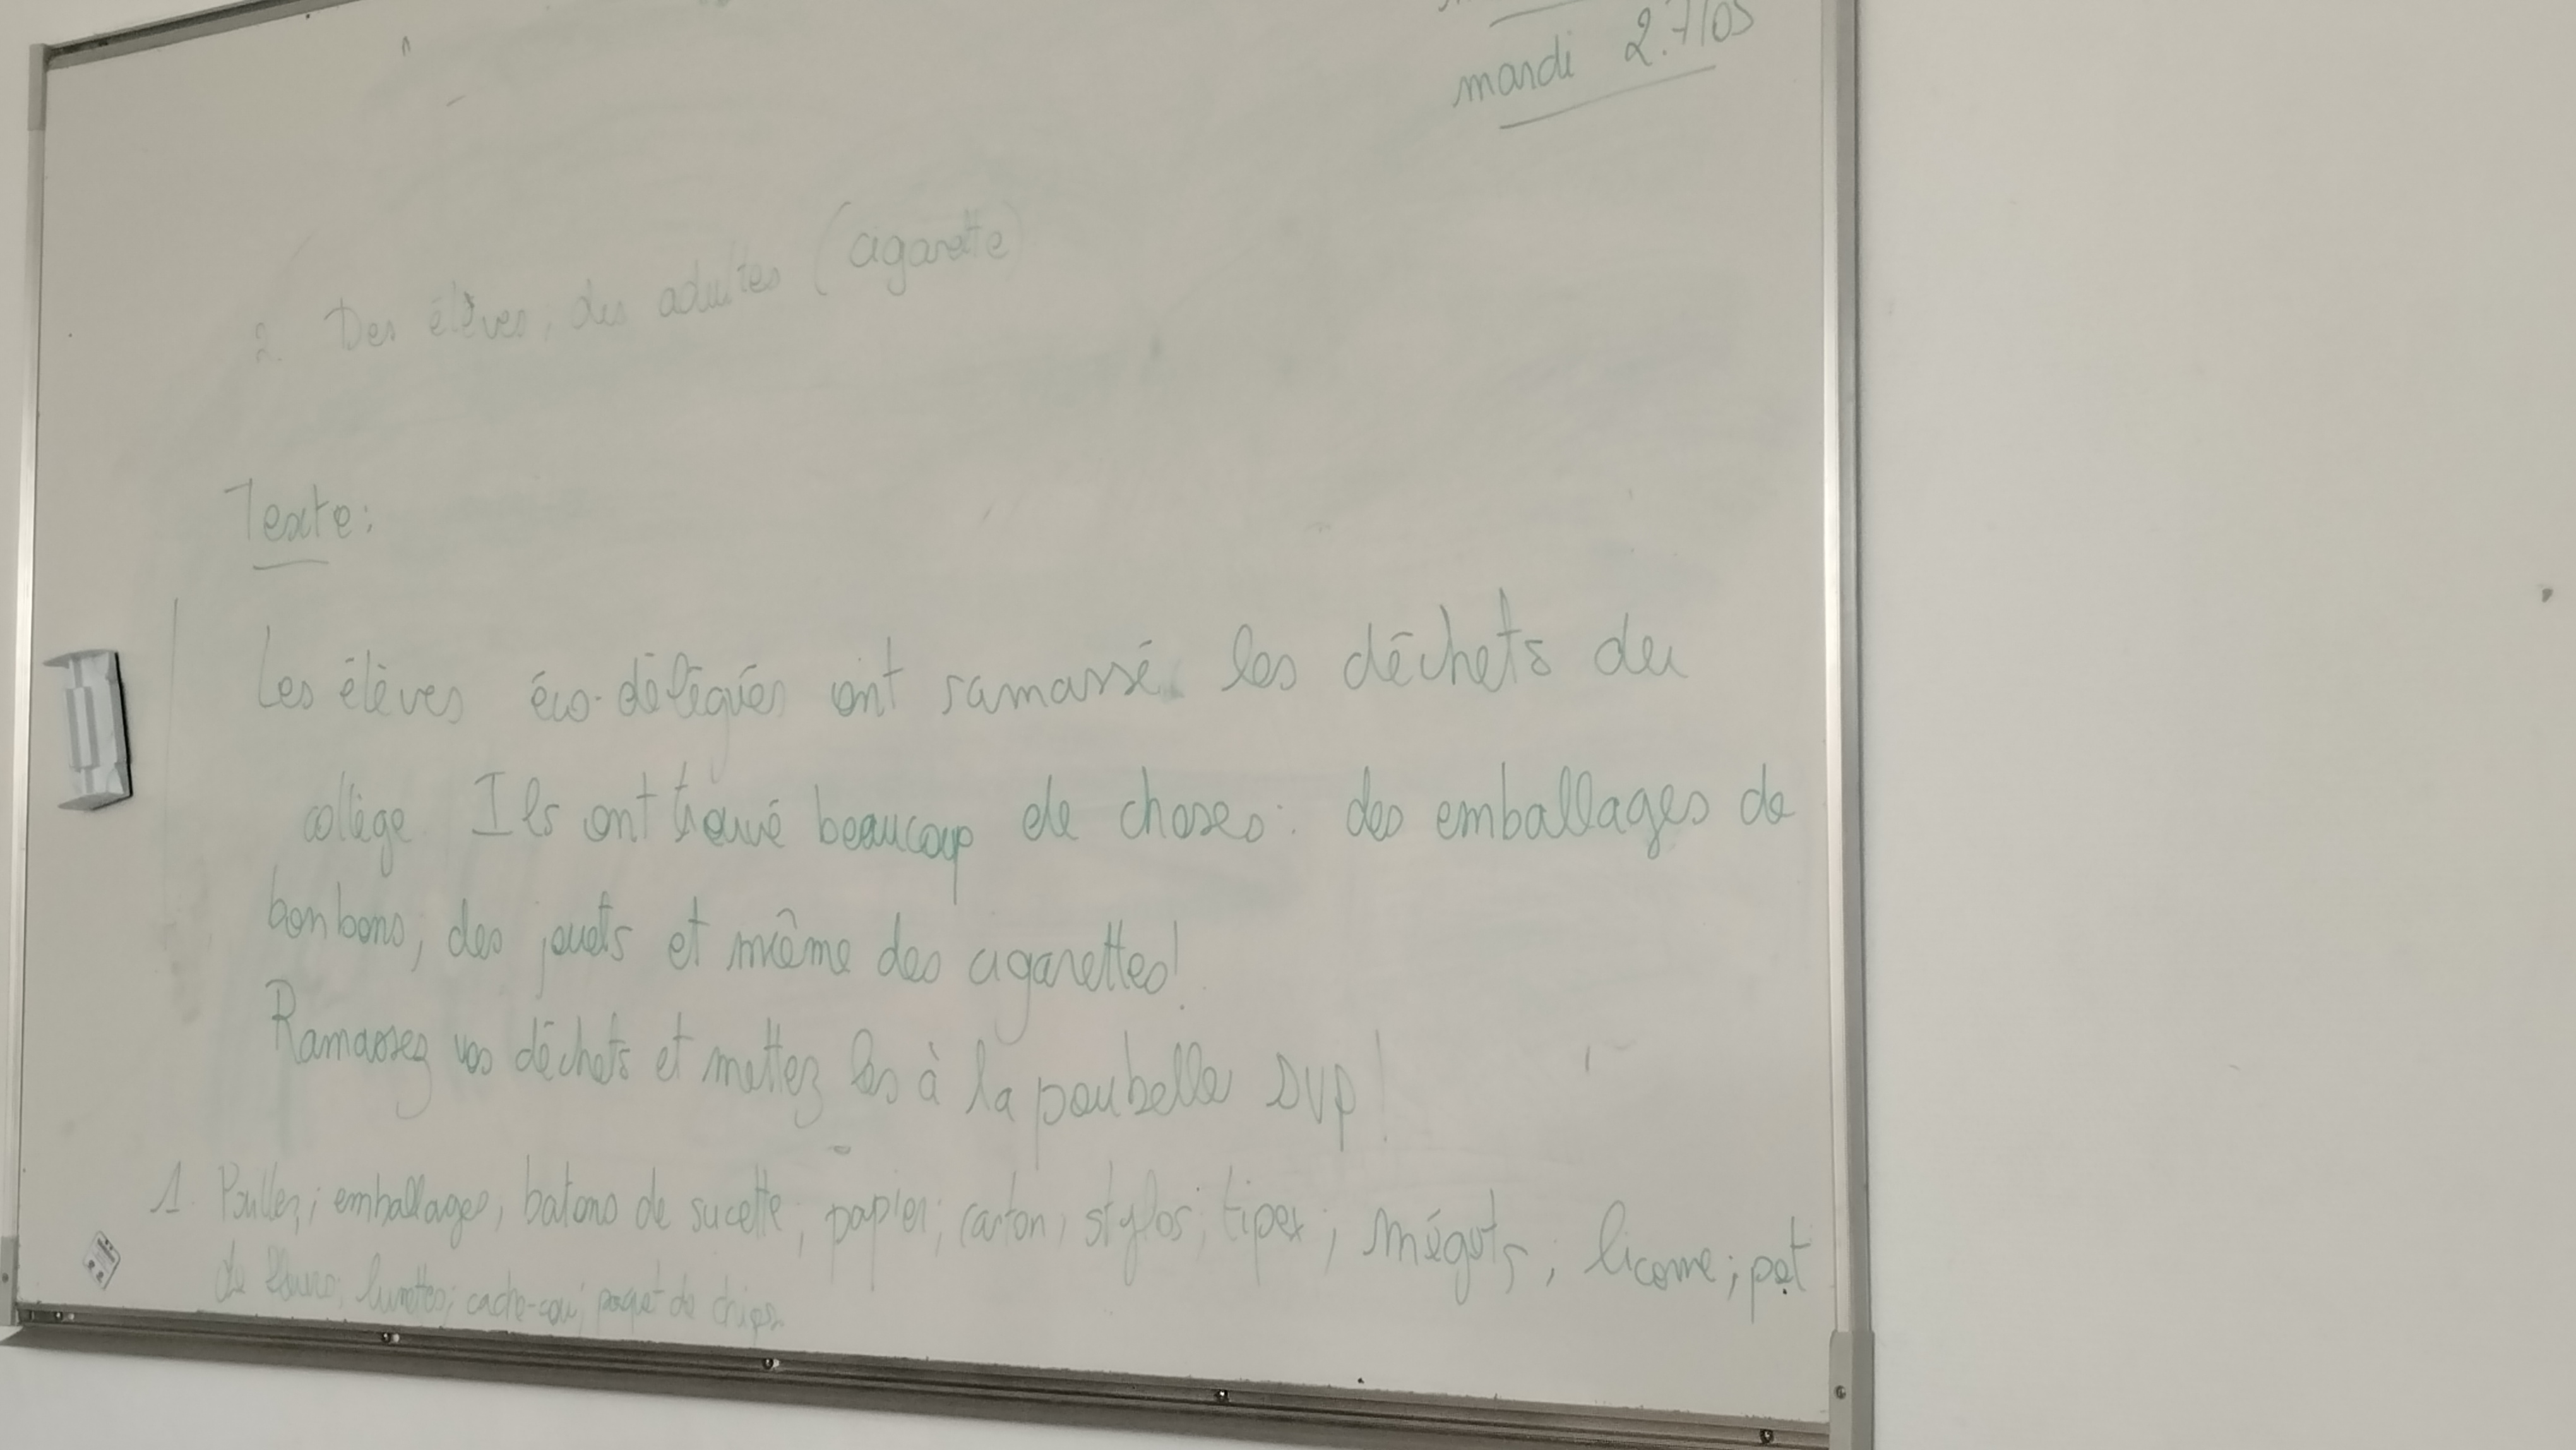 mardi 27/05
2. Des élèves, des adultes (cigarette)
Texte:
Les élèves éco-délégués ont ramassé les déchets du
collège Ils ont trouvé beaucoup de choses: des emballages de
bonbons, des jouets et même des cigarettes!
Ramassez vos déchets et mettez les à la poubelle SVP!
1. emballages; batons de sucette; papier; carton; stylos; tipex; mégots; licorne; pot
de lunettes; cache-cou; paquet de chips